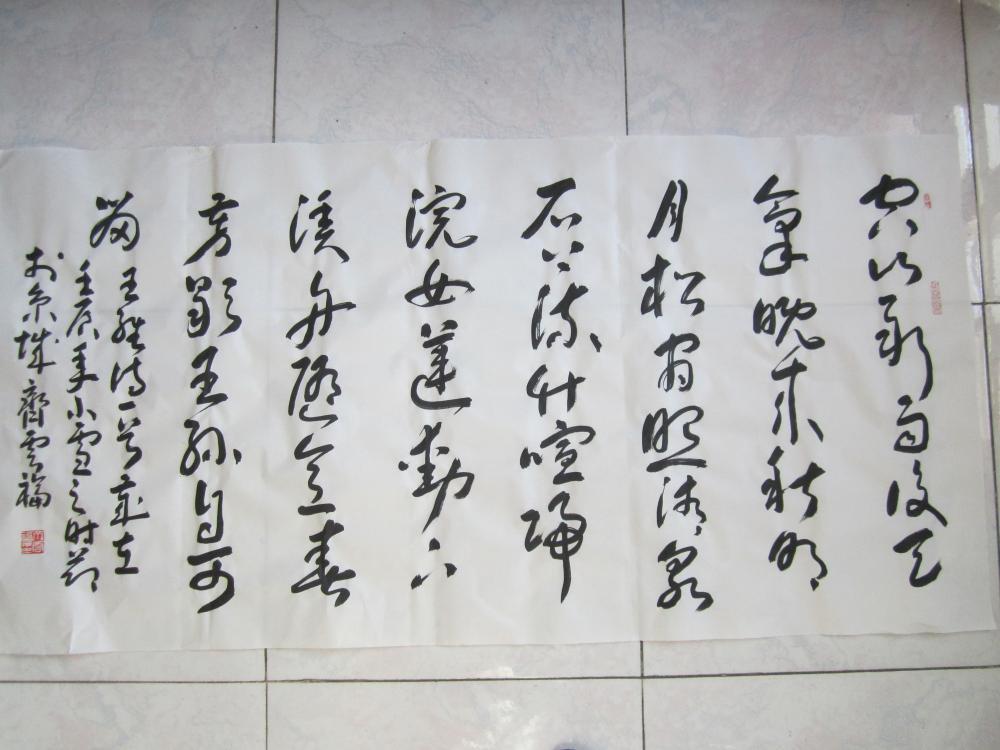 空山新雨後天
氣晚來秋明
月松間照清泉
石上流竹喧歸
浣女蓮動下
漁舟随意春
芳歇王孫自可
留 王維诗一首歲在
壬辰年小雪之时節
於京城齊雲福